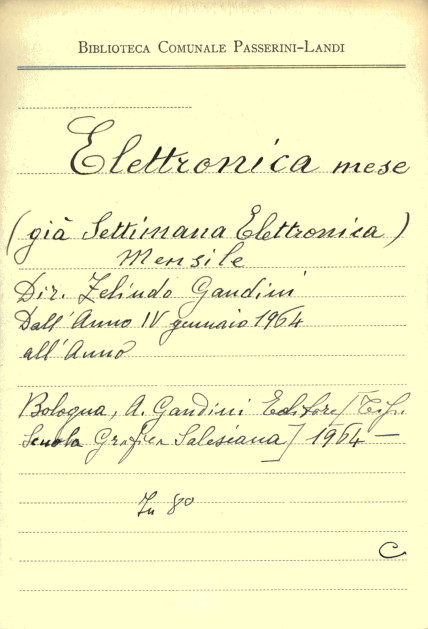 BIBLIOTECA COMUNALE PASSERINI-LANDI
Elettronica mese
(già Settimana Elettronica)
Mensile
Dir. Zelindo Gandini
Dall'Anno IV gennaio 1964
all'Anno
Bologna, A. Gandini Editore [Tip.
Scuola Grafica Salesiana] 1964 —
In 8º
C